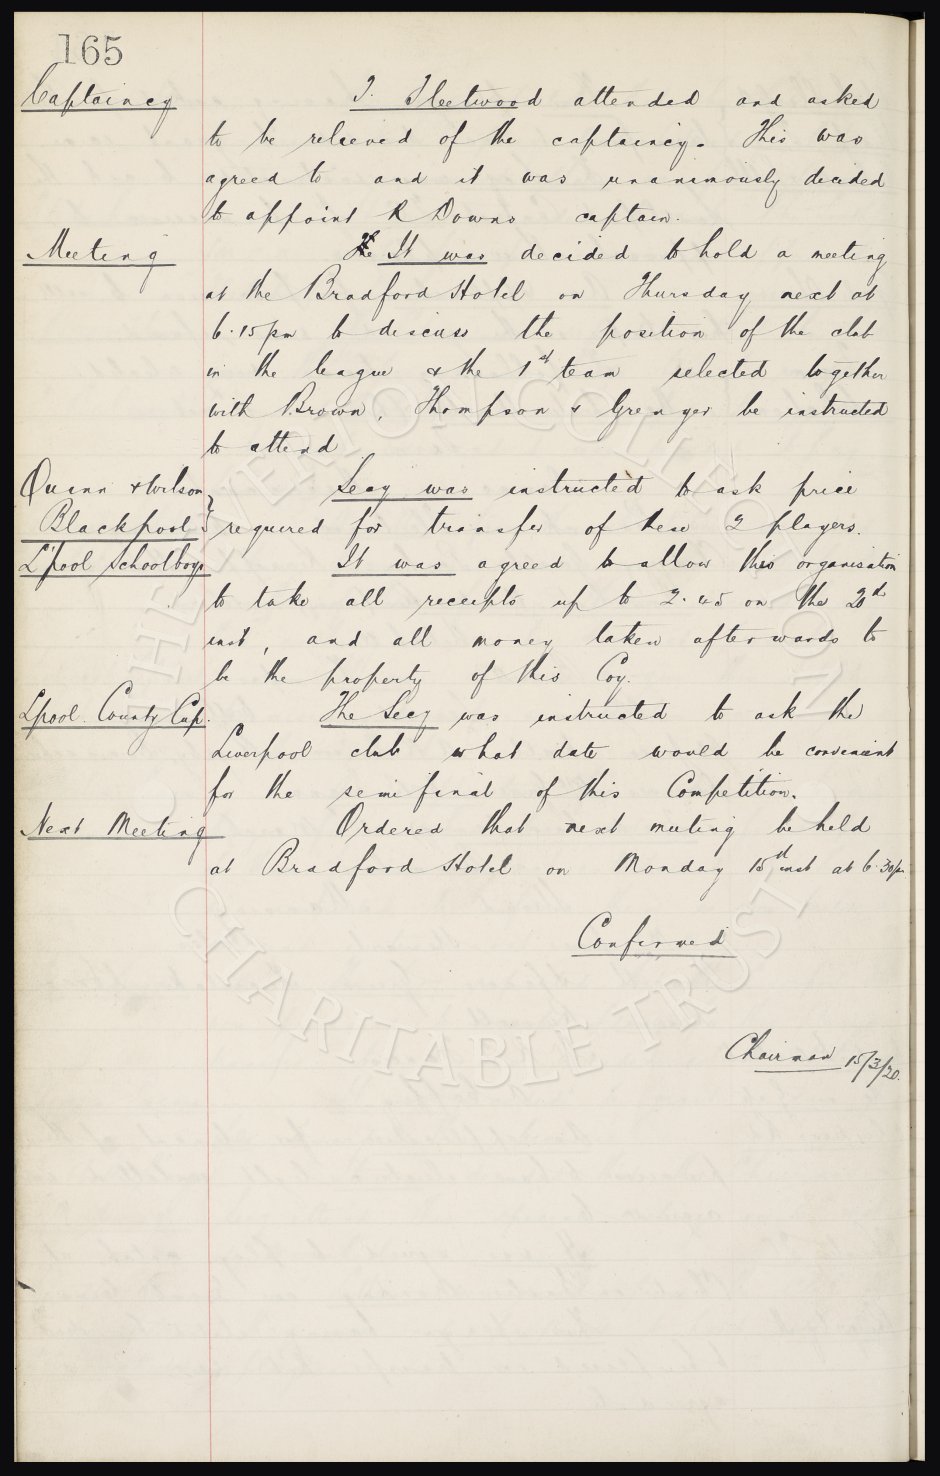 165
Captaincy
T. Fleetwood attended and asked
to be relieved of the captaincy. This was
agreed to and it was unanimously decided
to appoint R Downs captain.
Meeting
It was decided to hold a meeting
at the Bradford Hotel on Thursday next at
6.15pm to discuss the position of the club
in the league & the 1st team selected together
with Brown, Thompson & Grenyer be instructed
to attend
Quinn & Wilson
Blackpool
Secy was instructed to ask price
required for transfer of these 2 players.
L'pool Schoolboys
It was agreed to allow this organisation
to take all receipts up to 2.45 on the 20th
inst, and all money taken afterwards to
be the property of this Coy.
Lpool. County Cup.
The Secy was instructed to ask the
Liverpool club what date would be convenient
for the semifinal of this Competition.
Next Meeting
Ordered that next meeting be held
at Bradford Hotel on Monday 15th inst at 6.30pm
Confirmed
Chairman 15/3/20.
THE EVERTON COLLECTION
CHARITABLE TRUST